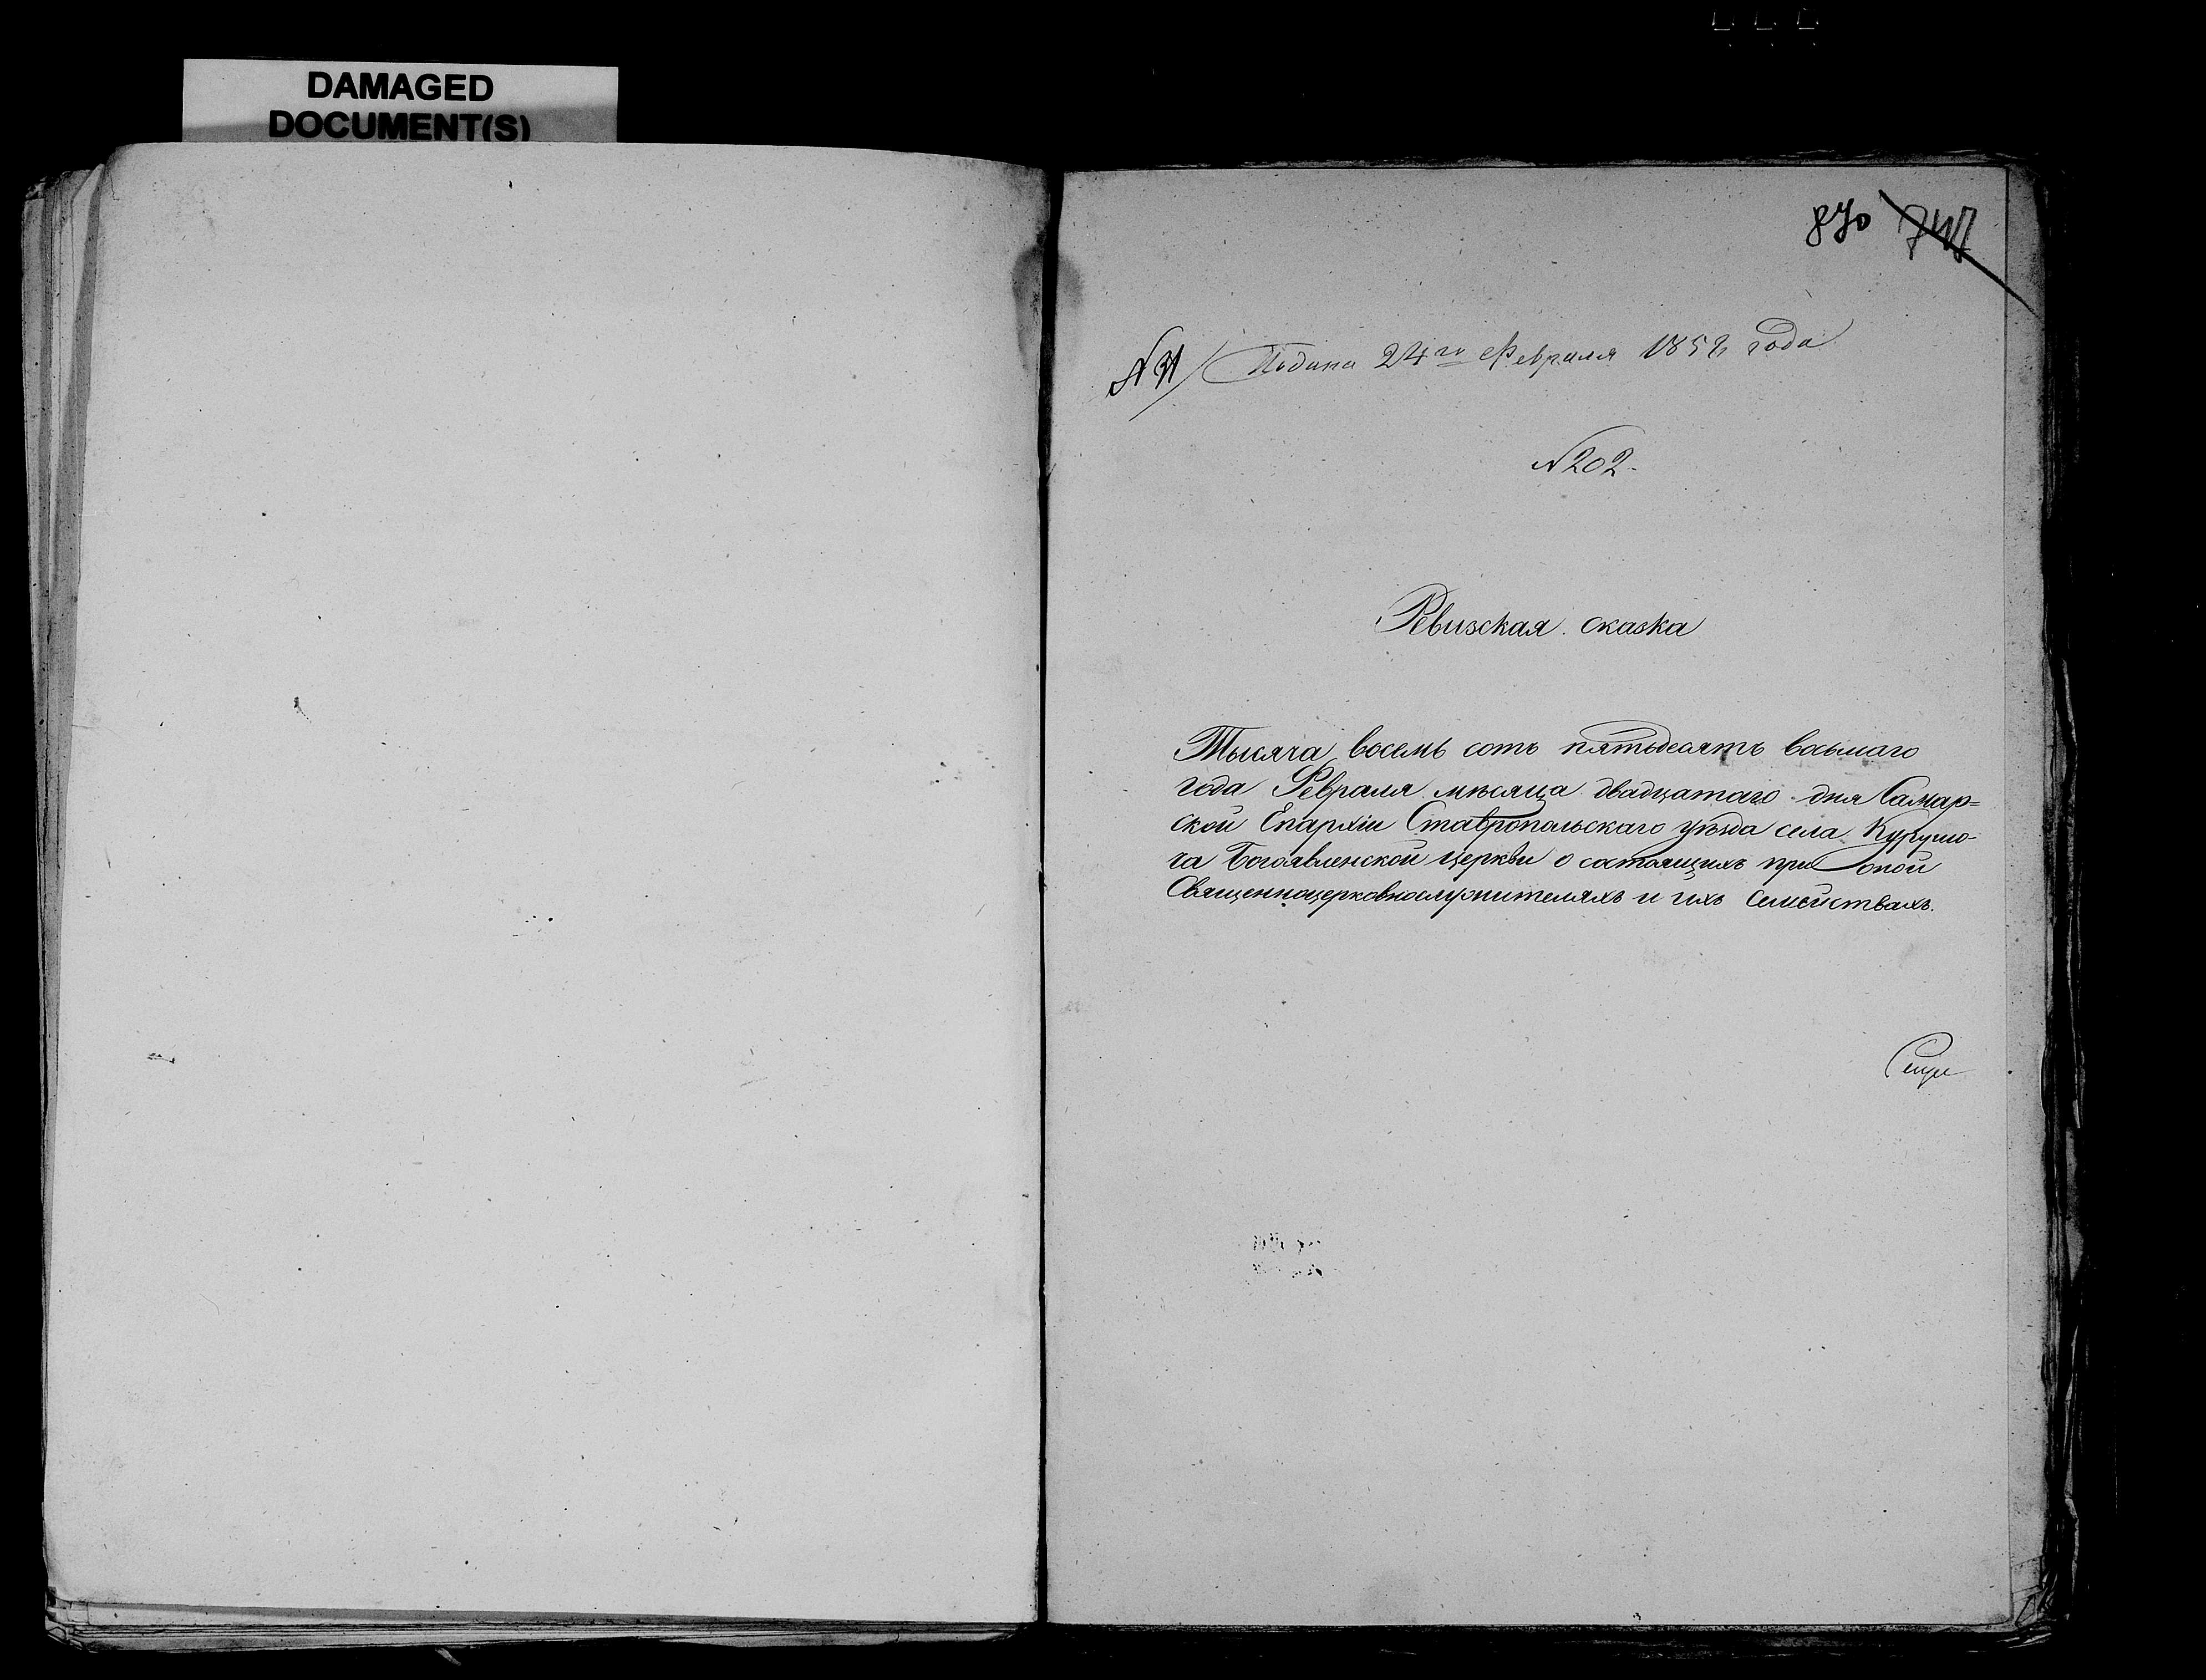 DAMAGED
DOCUMENT(S)
870 747
Подана 24го Февраля 1858 года
N 202.
Ревизская сказка
Тысяча восемь сотъ пятьдесятъ восьмаго
года Февраля мѣсяца двадцатаго дня Самар=
ской Епархіи Ставропольскаго уѣзда села Курумо-
ча Богоявленской церкви о состоящихъ при оной
Священноцерковнослужителяхъ и ихъ Семействахъ.